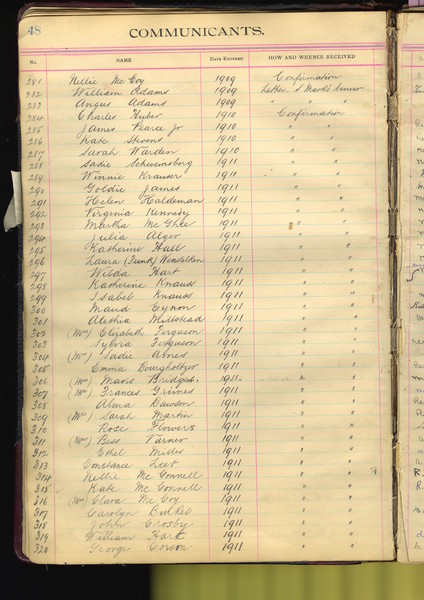 48
COMMUNICANTS.
No. NAME DATE ENTERED HOW AND WHENCE RECEIVED
281 Nellie McCoy 1909 Confirmation
282 William Adams 1909 Letter S Mark's Denver
283 Angus Adams 1909 " " " "
284 Charles Huber 1910 Confirmation
285 James Pearce Jr 1910 " "
286 Kate Stevens 1910 " "
287 Sarah Warden 1910 " "
288 Sadie 1911 " "
289 Winnie Krauser 1911 " "
290 Goldie James 1911 " "
291 Helen Haldeman 1911 " "
292 Virginia Kennedy 1911 " "
293 Martha McGhee 1911 " "
294 Julia Alger 1911 " "
295 Katherine Hall 1911 " "
296 Laura (Funk) 1911 " "
297 Wilda Hart 1911 " "
298 Katherine Knauss 1911 " "
299 Isabel Knauss 1911 " "
300 Maud Eynon 1911 " "
301 Alethia Millstead 1911 " "
302 (Mrs) Elizabeth Ferguson 1911 " "
303 Sylvia Ferguson 1911 " "
304 (Mrs) Sadie Abnes 1911 " "
305 Emma 1911 " "
306 (Mrs) Marie Bridges. 1911. " "
307 (Mrs) Frances Grimes 1911 " "
308 Alma Dawson 1911 " "
309 (Mrs) Sarah Martin 1911 " "
310 Rose Flowers 1911 " "
311 (Mrs) Bess Varner 1911 " "
312 Ethel Milles 1911 " "
313 Constance Leet 1911 " "
314 Nellie McConnell 1911 " "
315 Kate McConnell 1911 " "
316 (Mrs) Clara McCoy 1911 " "
317 Carolyn 1911 " "
318 John Crosby 1911 " "
319 William Hart 1911 " "
320 George Corson 1911 " "